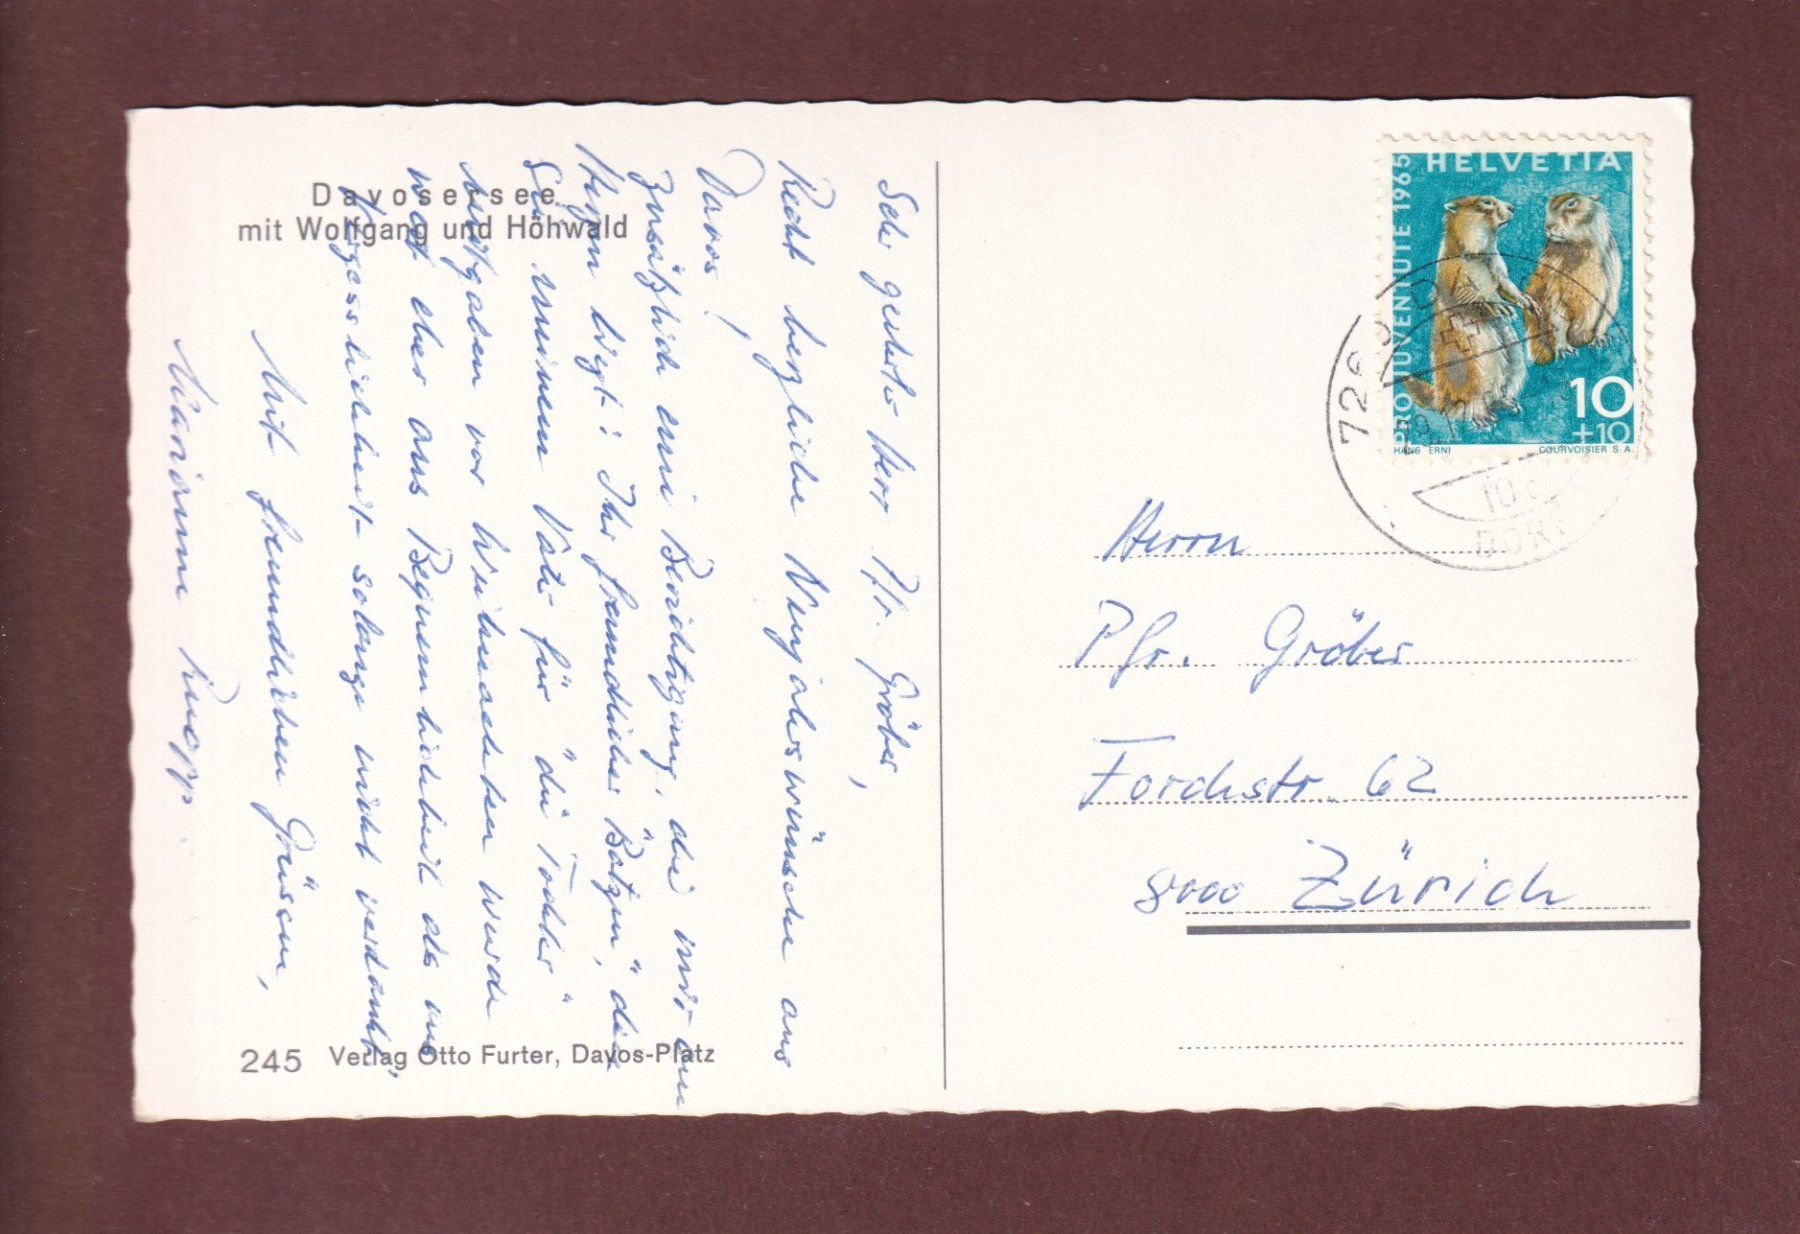 Davosersee
mit Wolfgang und Höhwald
Sehr geehrter Herr Pfr. Gröber,
Recht herzliche Neujahrswünsche aus
Davos!
Zusätzlich eine Berichtigung, die mir am
Herzen liegt: Ihr freundlicher "Batzen", den
Sie meinem Vater für "die Tochter"
mitgaben vor Weihnachten wurde
nicht eher aus Bequemlichkeit als aus
Vergesslichkeit solange nicht verdankt.
Mit freundlichen Grüssen,
Marianne Ruepp.
245 Verlag Otto Furter, Davos-Platz
HELVETIA
PRO JUVENTUTE 1965
10
+10
HANS ERNI
COURVOISIER S.A.
10
DORF
Herrn
Pfr. Gröber
Forchstr. 62
8000 Zürich